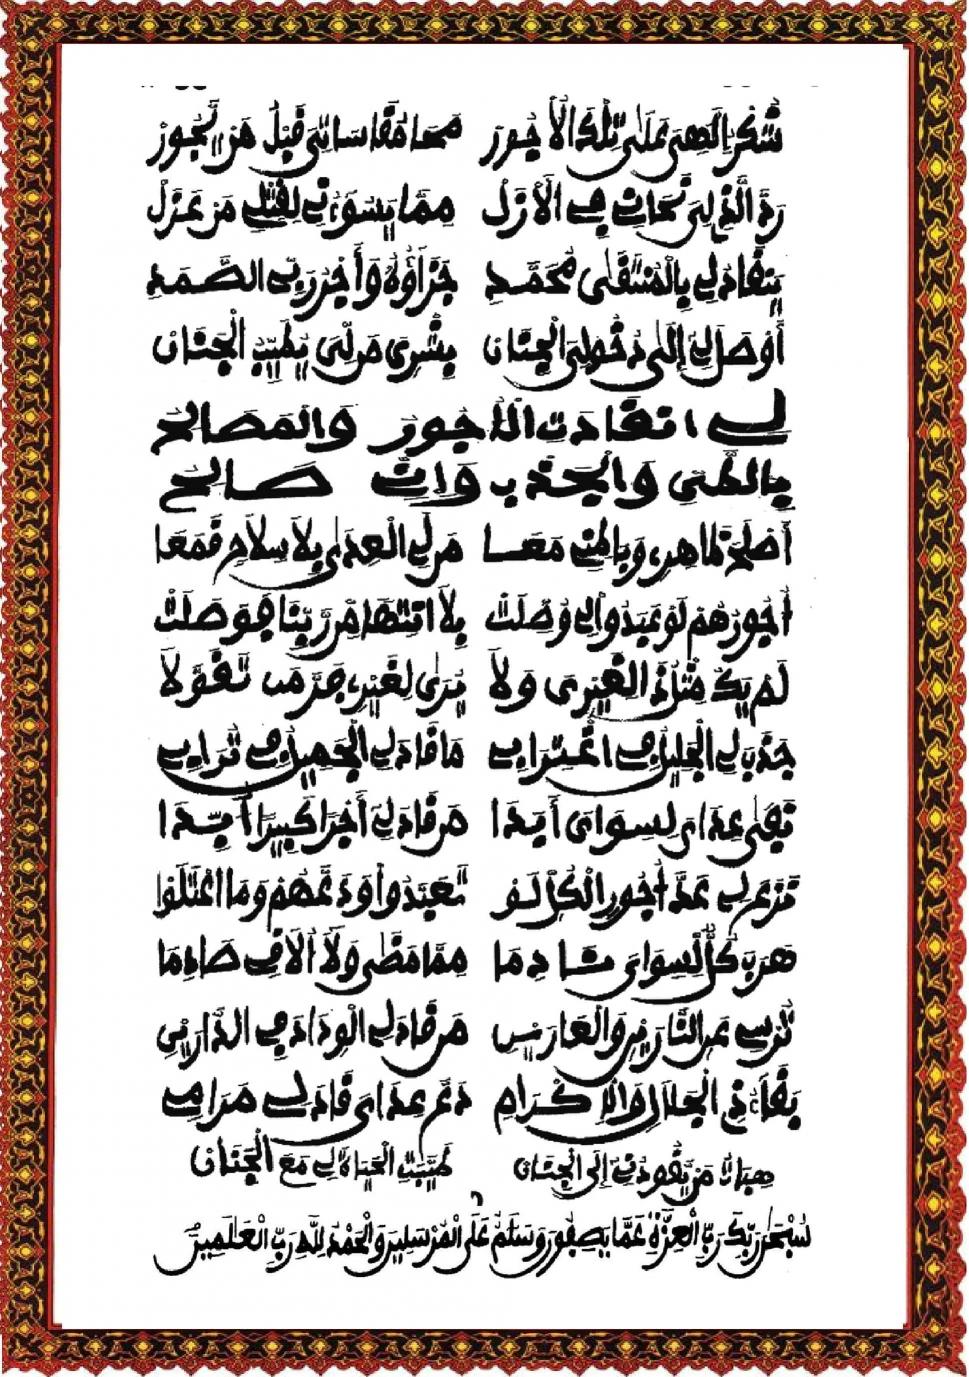 شُكْرِ إِلَهِي عَلَى تِلْكَ الأُجُورْ محا مقاساتي قبل هذي الجور
رَدَّ الذي لي نحاف في الأزل مما يسوءني لقتلي من عزل
ينقاد لي بالمنتقى محمد جزاؤه وأجر ربي الصمد
أوصل لي إلى دخولي الجنان بشرى من لي يطيب الجنان
لي انقادت الأجور والمصالح
بالهني والجذب وات صالح
أصلح ظاهري وبالهني معا من لي العدى بلا سلام قمعا
أجورهم لو عبدوا لي وصلت بلا انتها من ربنا فوصلت
لم يك مثل ذا لغيري ولا يرى لغيري جر من تقولا
جذب لي الجليل في اقترابي ما قاد لي الجميل في ترابي
نفى عداي لسواي أبدا من قاد لي أجرا كبيرا أبدا
تنزع لي عدّ أجور الكل لو تعبدوا ودعهم وما اعتلوا
هرب كل لسواي شادما مما مضى ولا ألاقي صادما
تزس عن النارين والعارين من قاد لي الوداد في الدارين
بقاء ذي الجلال والإكرام دمر عداي قاد لي مرامي
هبات من يقودني إلى الجنان طيبت الحياة لي مع الجنان
سُبْحَن رَبِّكَ رَبِّ الْعِزَّةِ عَمَّا يَصِفُونَ وَسَلَمٌ عَلَى الْمُرْسَلِينَ وَالْحَمْدُ لِلَّهِ رَبِّ الْعَلَمِينَ